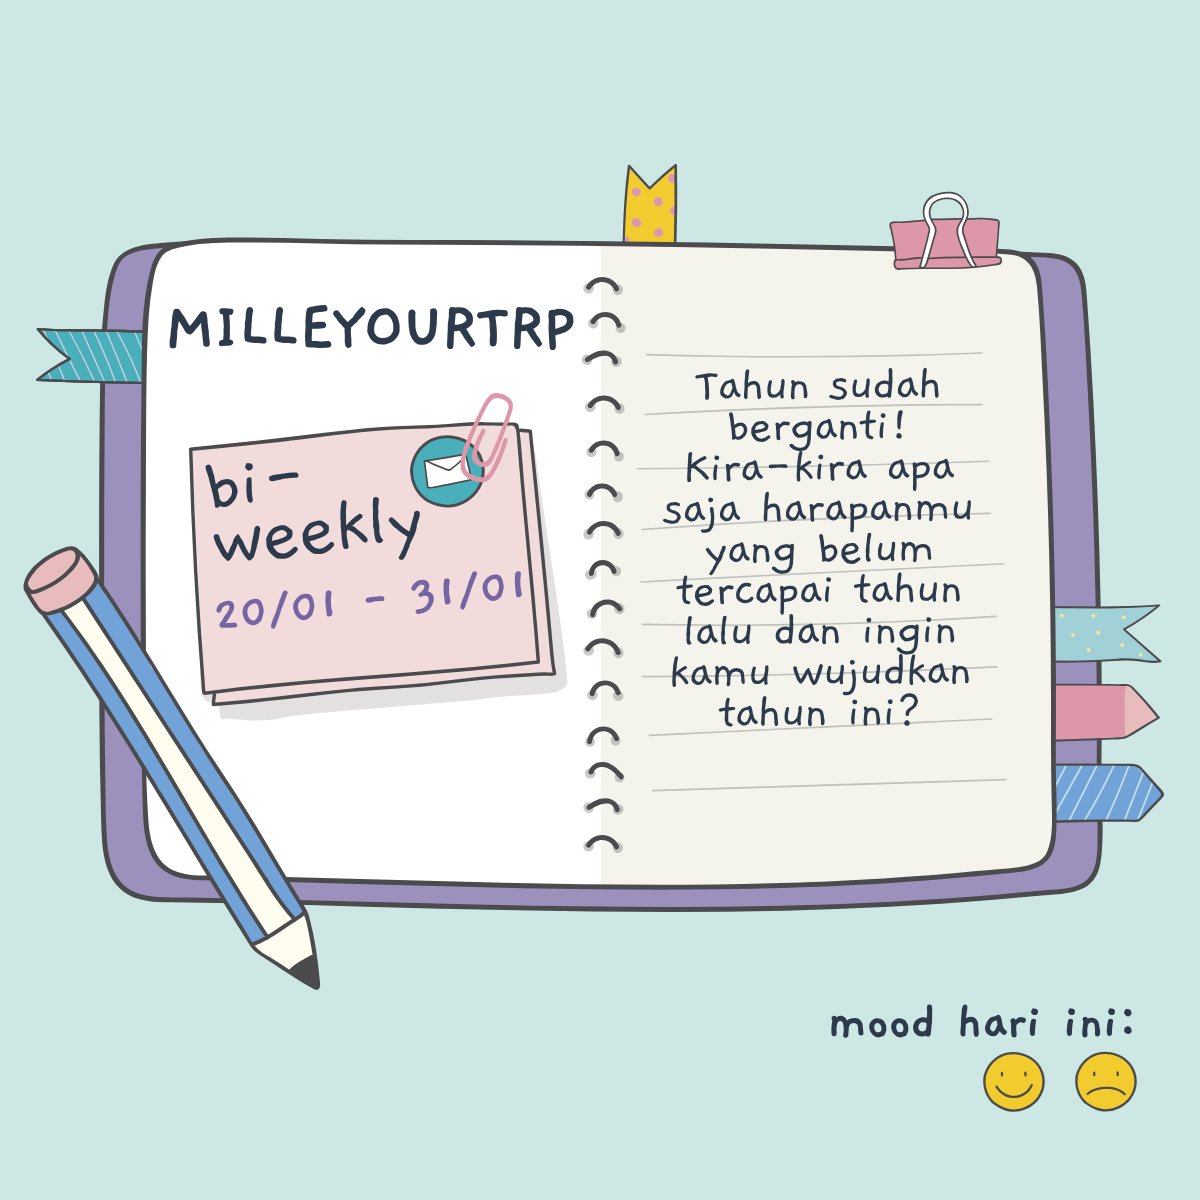 MILLEYOURTRP
bi-
weekly
20/01 - 31/01
Tahun sudah
berganti!
Kira-kira apa
saja harapanmu
yang belum
tercapai tahun
lalu dan ingin
kamu wujudkan
tahun ini?
mood hari ini: